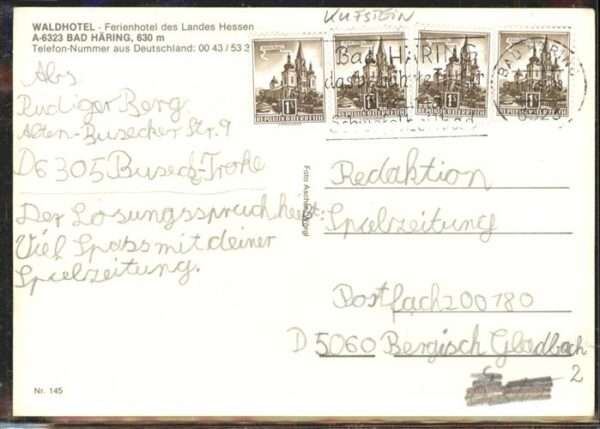 KUFSTEIN
WALDHOTEL - Ferienhotel des Landes Hessen
A-6323 BAD HÄRING, 630 m
Telefon-Nummer aus Deutschland: 00 43 / 53 3
Bad HÄRING
BAD HÄRING
REPUBLIK ÖSTERREICH
REPUBLIK ÖSTERREICH
REPUBLIK ÖSTERREICH
REPUBLIK ÖSTERREICH
Abs
Rüdiger Berg
Alten-Busecker Str. 9
D6305 Buseck-Trohe
Der Lösungsspruch heist:
Viel Spass mit deiner
Spielzeitung.
Foto
Redaktion
Spielzeitung
Postfach 200180
D 5060 Bergisch Gladbach-
2
Nr. 145